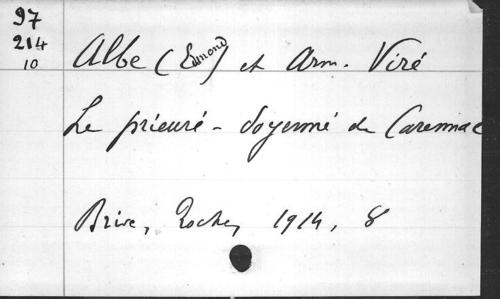 97
214
10
Albe (Edmond) et Arm. Viré
Le prieuré-doyenné de Carennac
Brive, Roche, 1914, 8